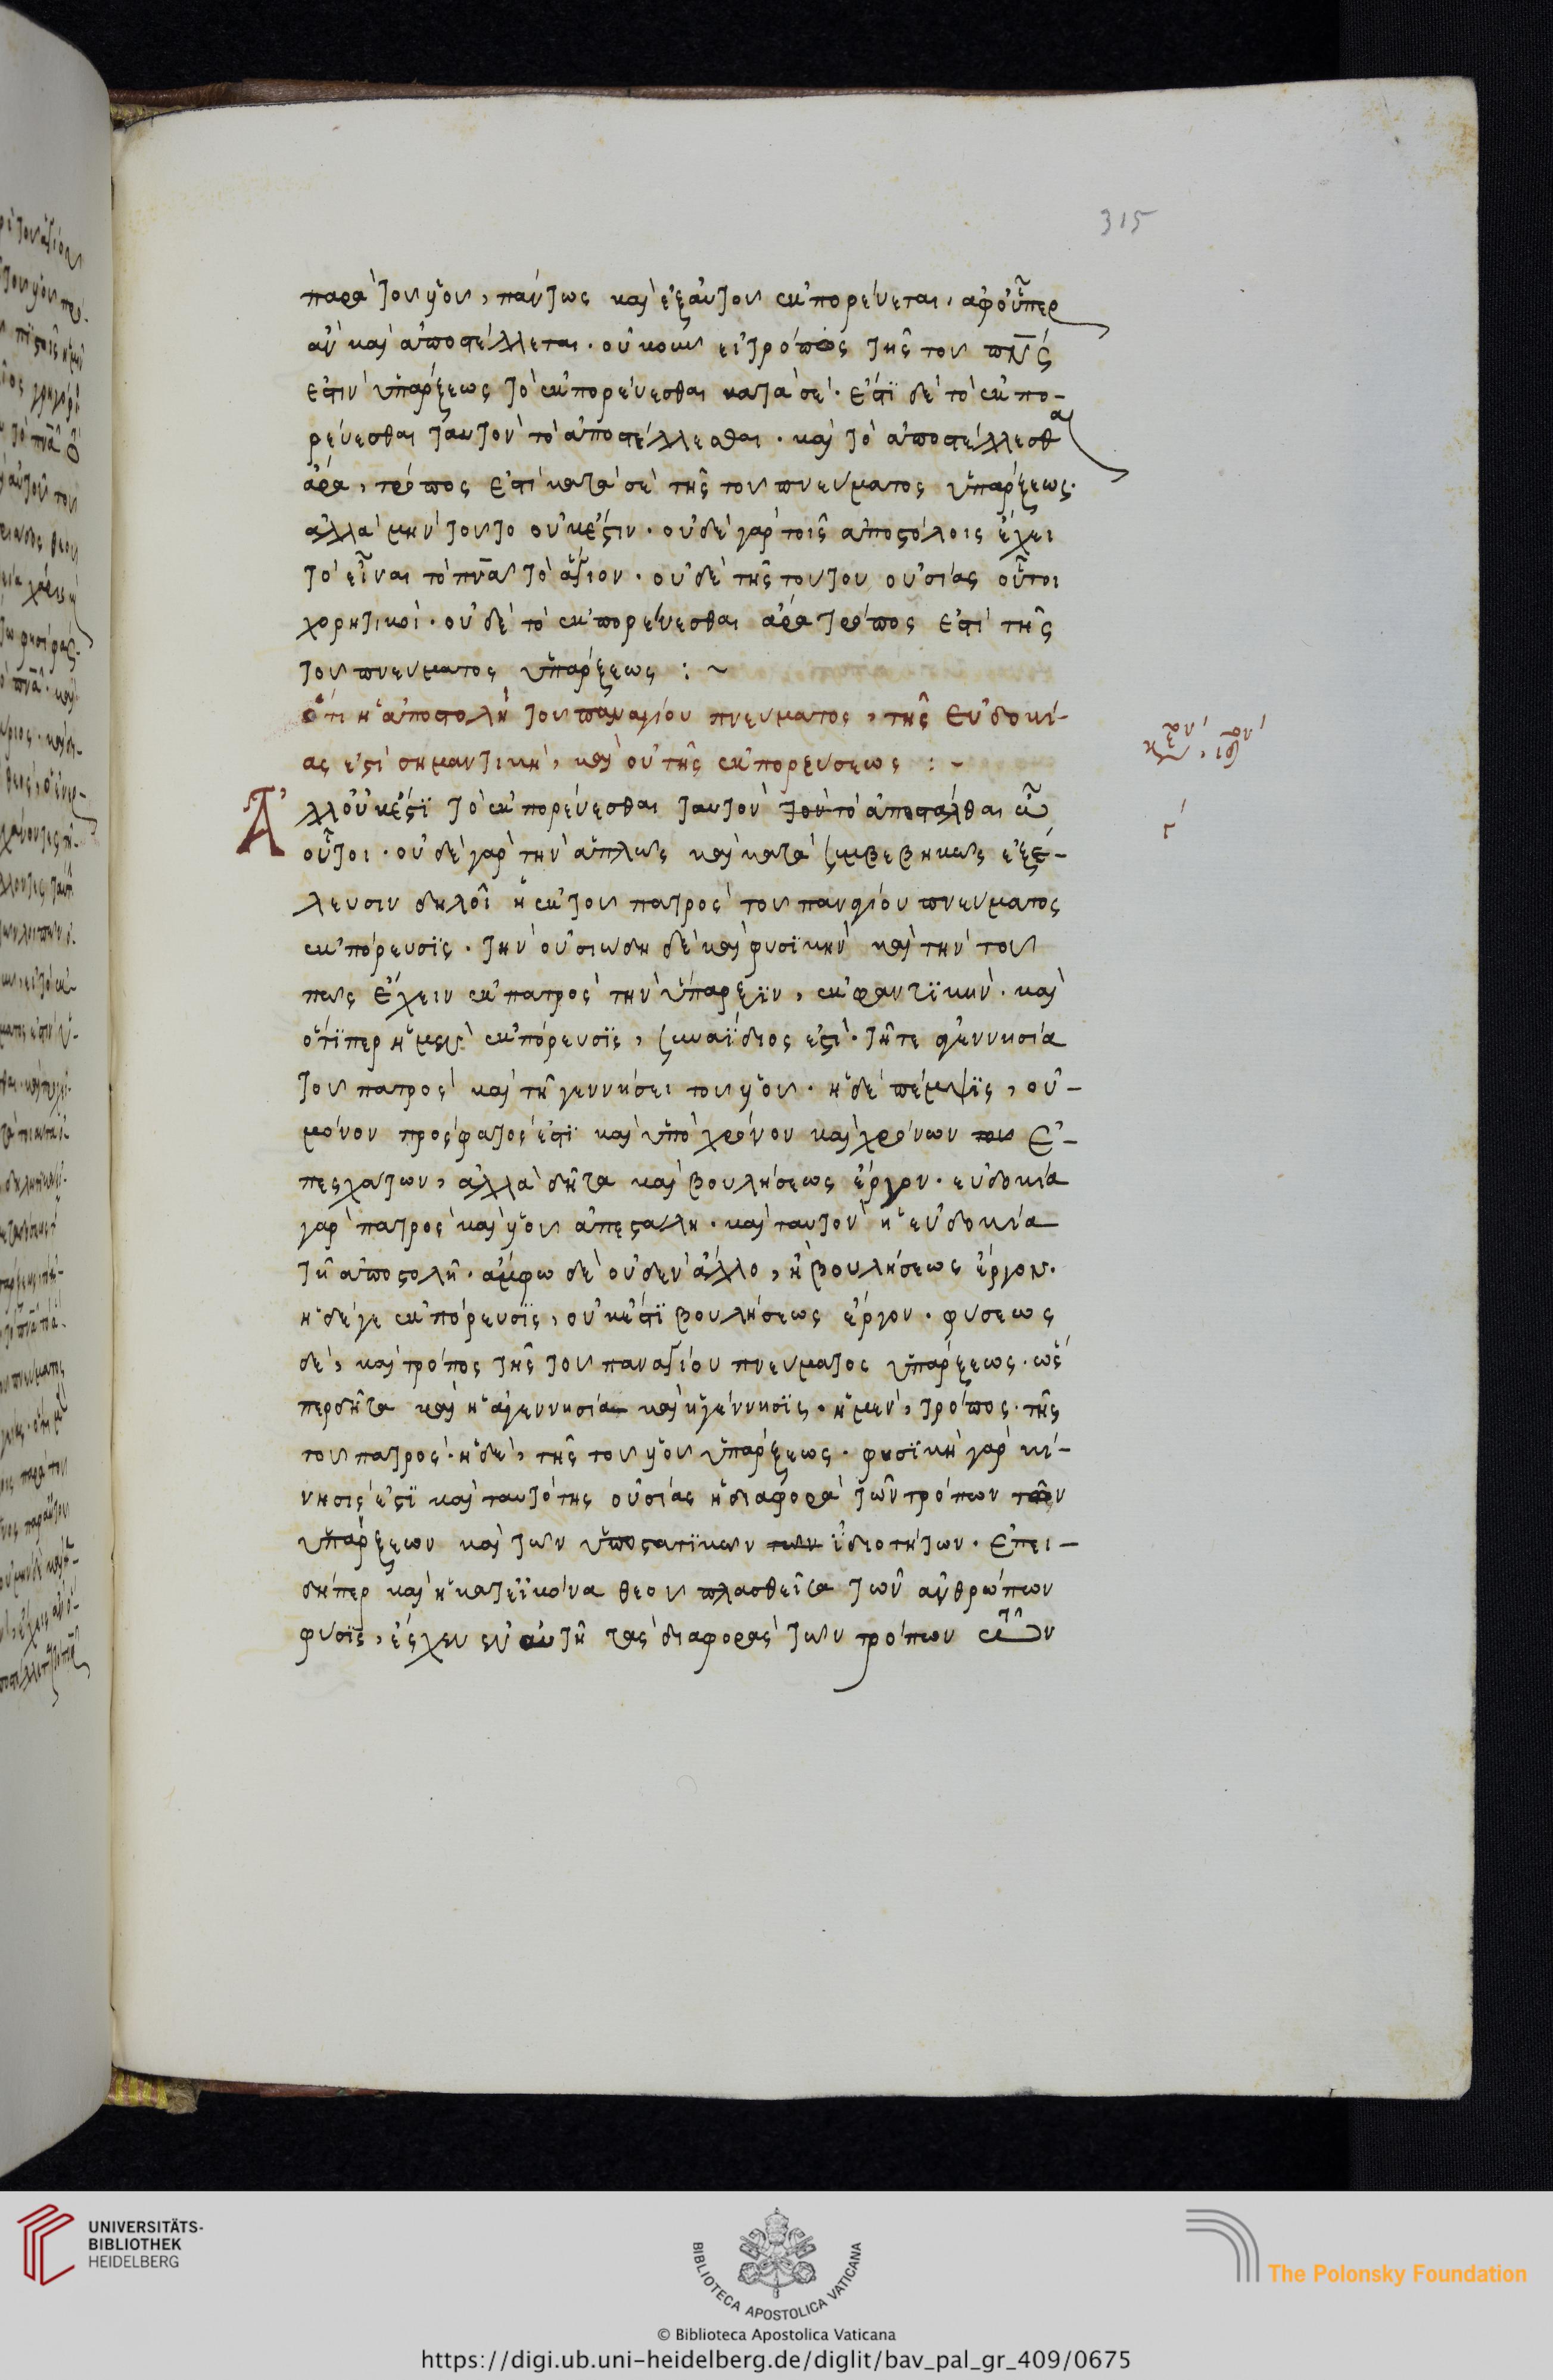 315
παρὰ τοῦ ὑοῦ, πάντως καὶ ἐξαὐτοῦ ἐκπορεύεται, ἀφοὗπερ
ἂν καὶ ἀποστέλλεται. οὐκοῦν εἰ τρόπος τῆς τοῦ πν̅ς
ἐστὶν ὑπάρξεως τὸ ἐκπορεύεσθαι κατὰ σέ. ἔστϊ δὲ τὸ ἐκπο-
ρεύεσθαι ταυτὸν τὸ ἀποστέλλεσθαι. καὶ τὸ ἀποστέλλεσθαι
ἄρα, τρόπος ἐστὶ κατὰ σὲ τῆς τοῦ πνεύματος ὑπάρξεως.
ἀλλὰ μὴν τοῦτο οὐκέστιν. οὐδὲ γὰρ τοῖς ἀποστόλοις ἔχει
τὸ εἶναι τὸ πν̅α τὸ ἅγιον. οὐδὲ τῆς τούτου οὐσίας οὗτοι
χορηγικοί. οὐδὲ τὸ ἐκπορεύεσθαι ἄρα τρόπος ἐστὶ τῆς
τοῦ πνεύματος ὑπάρξεως : ~
ὅτι ἡ ἀποστολὴ τοῦ παναγίου πνεύματος, τῆς εὐδοκί-
ας ἐστὶ σημαντικὴ, καὶ οὐ τῆς ἐκπορεύσεως : ~
Ἀλλοὐκέστϊ τὸ ἐκπορεύεσθαι ταυτὸν τὸ ἀποστάλθαι ὦ
οὗτοι. οὐδὲ γὰρ τὴν ἁπλῶς καὶ κατὰ συμβεβηκὼς ἐξέ-
λευσιν δηλοῖ ἡ ἐκ τοῦ πατρὸς τοῦ παναγίου πνεύματος
ἐκπόρευσϊς. τὴν οὐσιώδη δὲ καὶ φυσϊκὴν καὶ τὴν τοῦ
πῶς ἔχειν ἐκ πατρὸς τὴν ὕπαρξϊν, ἐκφαντϊκήν. καὶ
ὅτϊπερ ἡ μὲν ἐκπόρευσϊς, συναΐδιος ἐστὶ. τῆτε ἀγεννησία
τοῦ πατρὸς καὶ τῆ γεννήσει τοῦ ὑοῦ. ἡ δὲ πέμψϊς, οὐ-
μόνον πρόςφατος ἐστϊ καὶ ὑπὸ χρόνον καὶ χρόνων τῶν ἐ-
πεσχάτων, ἀλλὰ δῆτα καὶ βουλήσεως ἔργον. εὐδοκία
γὰρ πατρὸς καὶ ὑοῦ ἀπεστάλη. καὶ ταυτὸν ἡ εὐδοκία
τῆ ἀποστολῆ. ἄμφω δὲ οὐδὲν ἄλλο, ἢ βουλήσεως ἔργον.
ἡ δέγε ἐκπόρευσϊς, οὐκέστϊ βουλήσεως ἔργον. φύσεως
δὲ, καὶ τρόπος τῆς τοῦ παναγίου πνεύματος ὑπάρξεως. ὥς
περ δῆτα καὶ ἡ ἀγεννησία καὶ ἡ γέννησϊς. ἡ μὲν, τρόπος. τῆς
τοῦ πατρός. ἡ δὲ, τῆς τοῦ ὑοῦ ὑπάρξεως. φυσϊκὴ γὰρ κί-
νησις ἐστϊ καὶ ταυτότης οὐσίας ἡ διαφορὰ τῶν τρόπων τῶν
ὑπάρξεων καὶ τῶν ὑποστατϊκῶν τῶν ἰδιοτήτων. ἐπει-
δήπερ καὶ ἡ κατεϊκόνα θεοῦ πλασθεῖσα τῶν ἀνθρώπων
φύσϊς, ἔσχεν ἐν αὐτῆ τὰς διαφορὰς τῶν τρόπων τῶν
UNIVERSITÄTS-
BIBLIOTHEK
HEIDELBERG
BIBLIOTECA APOSTOLICA VATICANA
The Polonsky Foundation
© Biblioteca Apostolica Vaticana
https://digi.ub.uni-heidelberg.de/diglit/bav_pal_gr_409/0675